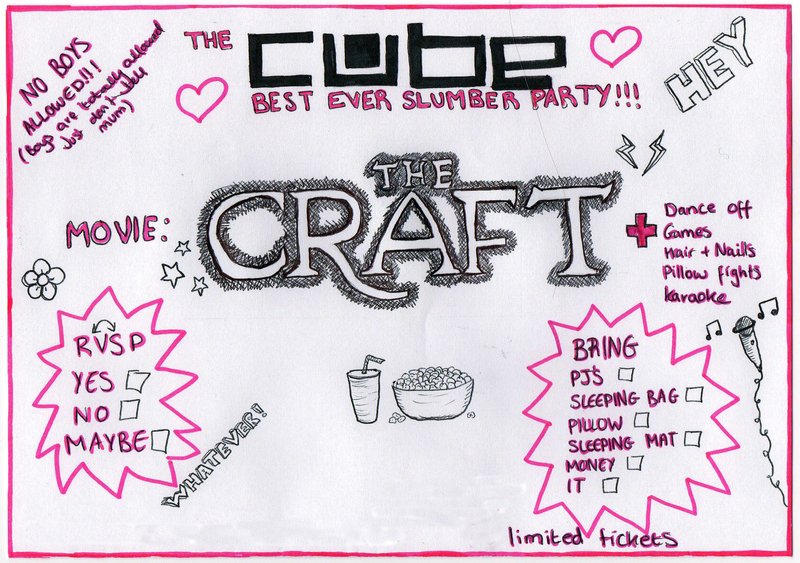 NO BOYS
ALLOWED!!!
(Boys are totally allowed
just don't tell
mum)
THE CUBE
BEST EVER SLUMBER PARTY!!!
HEY
MOVIE:
THE
CRAFT
+ Dance off
Games
Hair + Nails
Pillow fights
Karaoke
RVSP
YES
NO
MAYBE
WHATEVER!
BRING
PJ'S
SLEEPING BAG
PILLOW
SLEEPING MAT
MONEY
IT
limited tickets